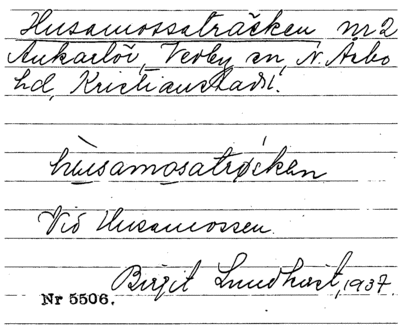 Husamossaträcken nr 2
Ankarlöv, Vedby sn, N. Åsbo
hd, Kristianstads l.
hùsamosatrøcken
Vid Husamossen.
Birgit Lundqvist, 1937.
Nr 5506.